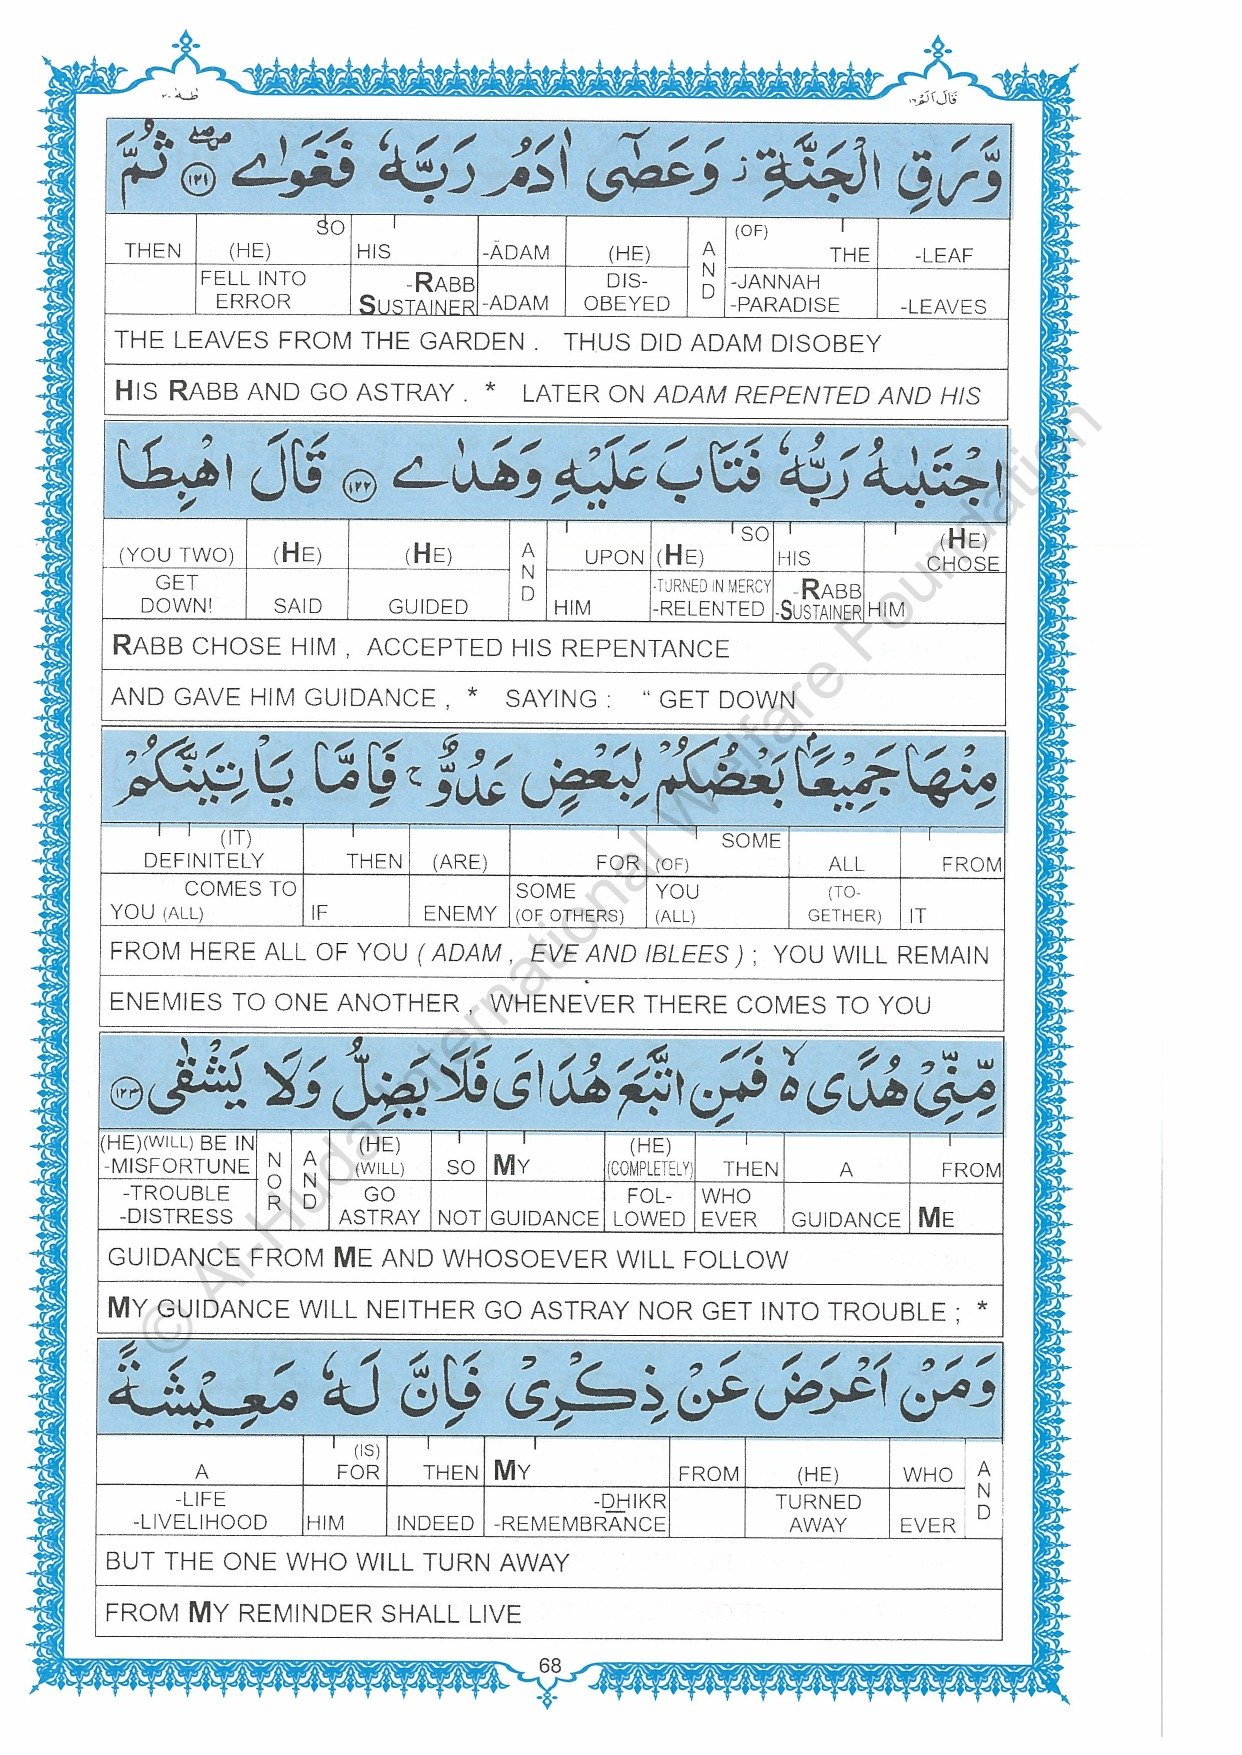 قَالَ اَلَمْ ١٦
طٰهٰ ٢٠
وَّرَقِ الْجَنَّةِ ز وَعَصٰٓى اٰدَمُ رَبَّهٗ فَغَوٰى ﴿١٢١﴾ ثُمَّ
THEN (HE) SO HIS -ĀDAM (HE) AND (OF) THE -LEAF
FELL INTO ERROR -RABB SUSTAINER -ADAM DIS-OBEYED -JANNAH -PARADISE -LEAVES
THE LEAVES FROM THE GARDEN . THUS DID ADAM DISOBEY
HIS RABB AND GO ASTRAY . * LATER ON ADAM REPENTED AND HIS
اجْتَبٰىهُ رَبُّهٗ فَتَابَ عَلَيْهِ وَهَدٰى ﴿١٢٢﴾ قَالَ اهْبِطَا
(YOU TWO) (HE) (HE) AND UPON (HE) SO HIS (HE) CHOSE
GET DOWN! SAID GUIDED HIM -TURNED IN MERCY -RELENTED -RABB -SUSTAINER HIM
RABB CHOSE HIM , ACCEPTED HIS REPENTANCE
AND GAVE HIM GUIDANCE , * SAYING : “ GET DOWN
مِنْهَا جَمِيْعًاۢ بَعْضُكُمْ لِبَعْضٍ عَدُوٌّ ج فَاِمَّا يَاْتِيَنَّكُمْ
(IT) DEFINITELY THEN (ARE) FOR (OF) SOME ALL FROM
COMES TO YOU (ALL) IF ENEMY SOME (OF OTHERS) YOU (ALL) (TO-GETHER) IT
FROM HERE ALL OF YOU ( ADAM , EVE AND IBLEES ) ; YOU WILL REMAIN
ENEMIES TO ONE ANOTHER , WHENEVER THERE COMES TO YOU
مِّنِّيْ هُدًى ۵ لا فَمَنِ اتَّبَعَ هُدَايَ فَلَا يَضِلُّ وَلَا يَشْقٰى ﴿١٢٣﴾
(HE)(WILL) BE IN -MISFORTUNE NOR AND (HE) (WILL) SO MY (HE) (COMPLETELY) THEN A FROM
-TROUBLE -DISTRESS GO ASTRAY NOT GUIDANCE FOL-LOWED WHO EVER GUIDANCE ME
GUIDANCE FROM ME AND WHOSOEVER WILL FOLLOW
MY GUIDANCE WILL NEITHER GO ASTRAY NOR GET INTO TROUBLE ; *
وَمَنْ اَعْرَضَ عَنْ ذِكْرِيْ فَاِنَّ لَهٗ مَعِيْشَةً
A (IS) FOR THEN MY FROM (HE) WHO AND
-LIFE -LIVELIHOOD HIM INDEED -DHIKR -REMEMBRANCE TURNED AWAY EVER
BUT THE ONE WHO WILL TURN AWAY
FROM MY REMINDER SHALL LIVE
68
© Al-Huda International Welfare Foundation